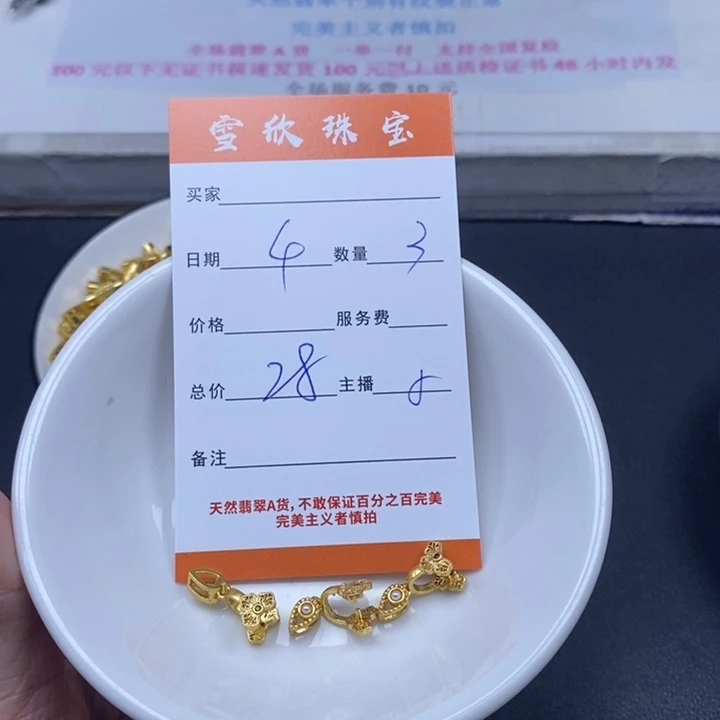 完美主义者慎拍
全场翡翠A货 一单一付 支持全国复检
200元以下无证书极速发货100元以上送质检证书48小时内发
全场服务费10元
雪欣珠宝
买家
日期 4 数量 3
价格 服务费
总价 28 主播
备注
天然翡翠A货,不敢保证百分之百完美
完美主义者慎拍